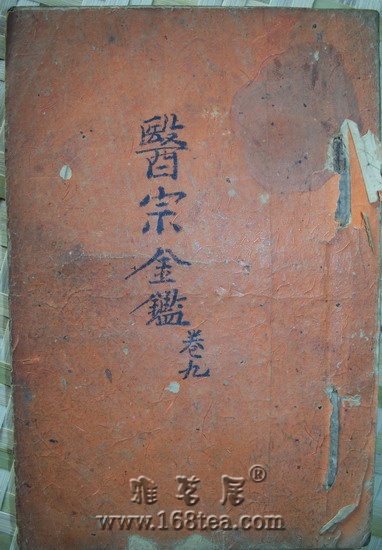 醫宗金鑑
卷九
雅茗居®
www.168tea.com